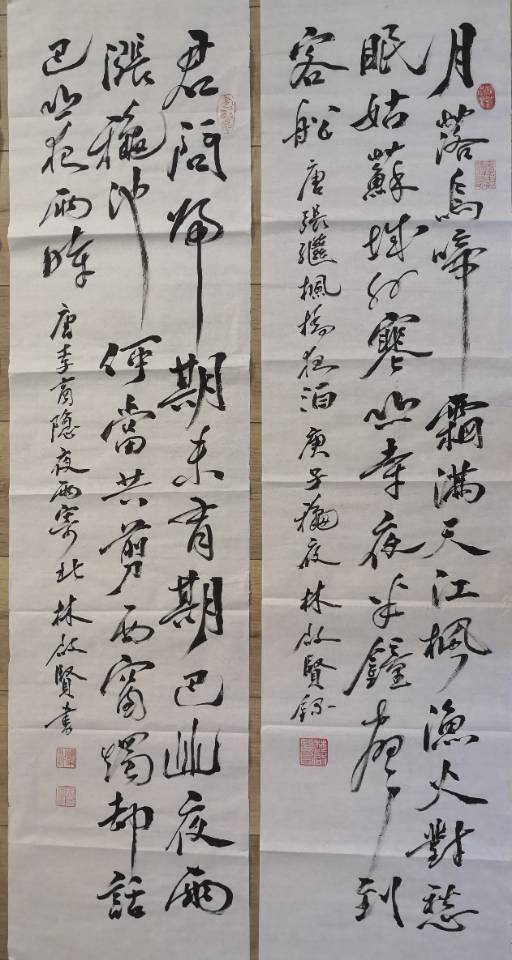 月落烏啼霜滿天江楓漁火對愁
眠姑蘇城外寒山寺夜半鐘聲到
客船 唐張繼楓橋夜泊 庚子穐夜 林啟賢錄
君問歸期未有期巴山夜雨
漲穐池何當共剪西窗燭却話
巴山夜雨時 唐李商隐夜雨寄北 林啟賢書